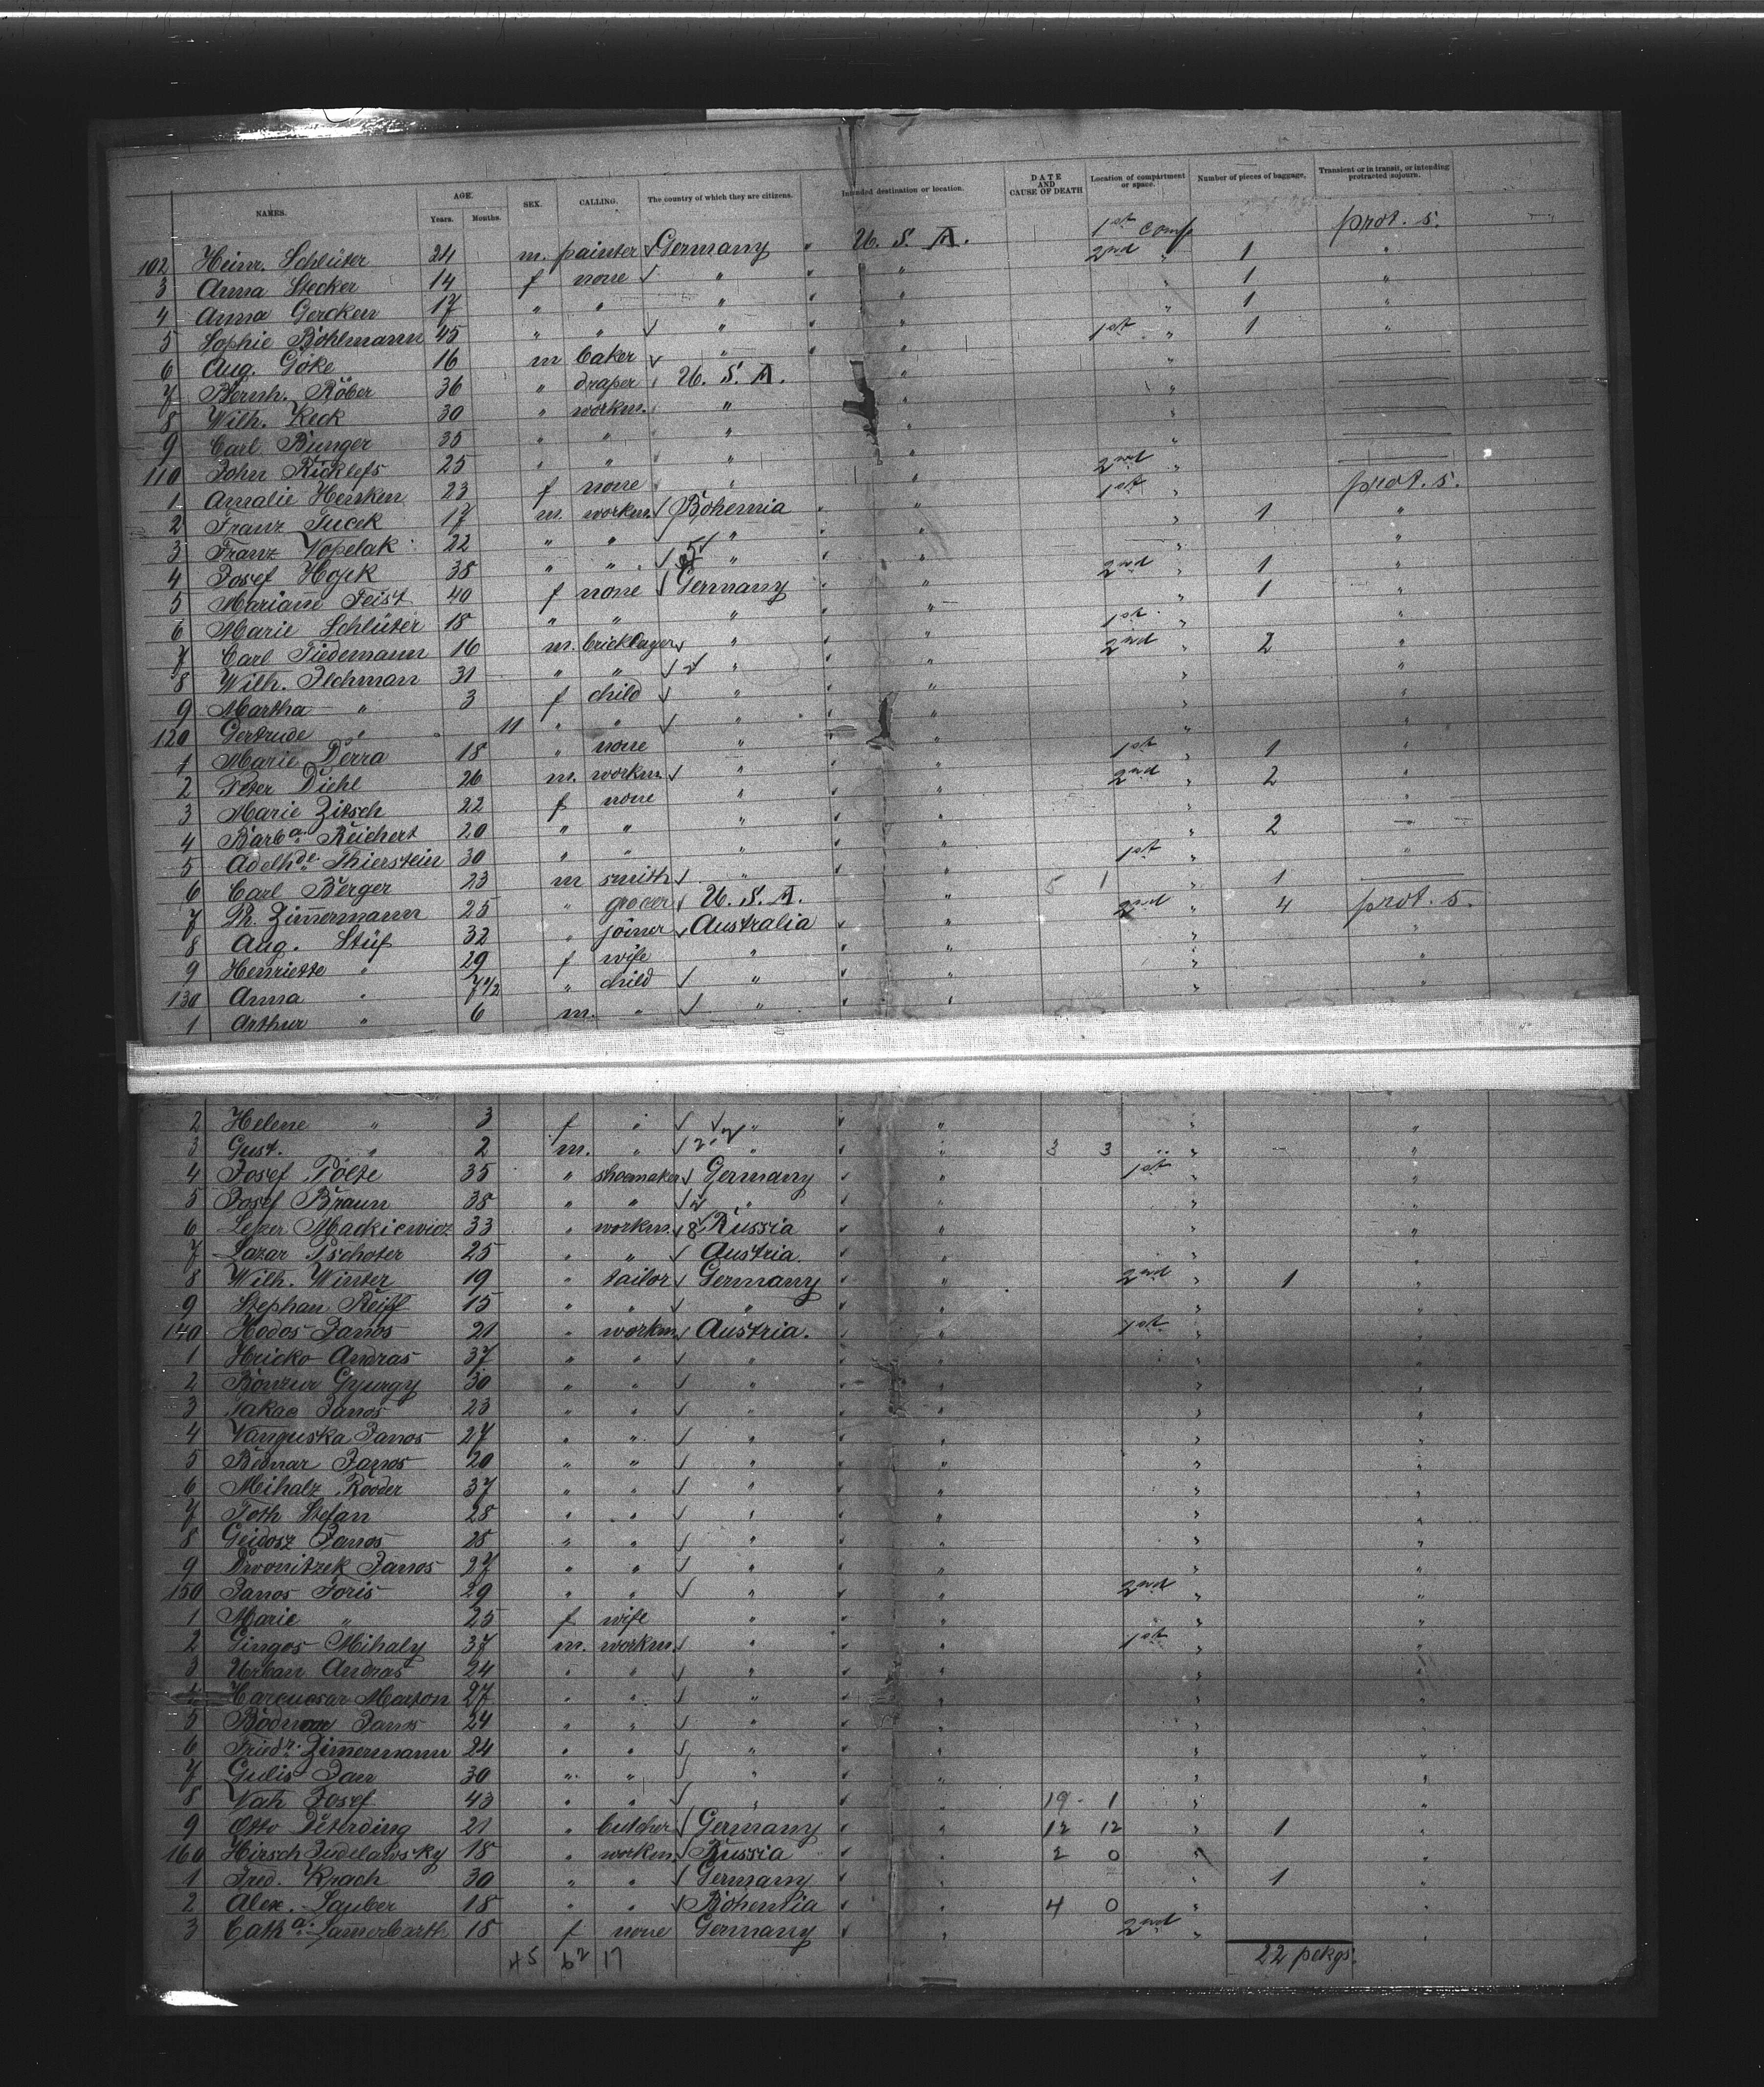 NAMES. AGE. Years. Months. SEX. CALLING. The country of which they are citizens. Intended destination or location. DATE AND CAUSE OF DEATH Location of compartment or space. Number of pieces of baggage. Transient or in transit, or intending protracted sojourn.
102 Heinr. Schlüter 24 m. painter Germany " U. S. A. 1st comp prot. s.
3 Anna Stecker 14 f none " " " 2nd " 1 "
4 Anna Gercken 17 " " " " " " 1 "
5 Sophie Böhlmann 45 " " " " " " 1 "
6 Aug. Göke 16 m baker " " " 1st " 1 "
7 Bernh. Röber 36 " draper U. S. A. " "
8 Wilh. Keck 30 " workm. " " "
9 Carl Bünger 35 " " " " "
110 John Ricklefs 25 " " " " "
1 Amalie Henken 23 f none " " 2nd "
2 Franz Tucek 17 m. workm. Bohemia " " 1st " prot. s.
3 Franz Vopelak 22 " " " " " " 1 "
4 Josef Hojek 38 " " " " " " "
5 Mariane Feist 40 f none Germany " " 2nd " 1 "
6 Marie Schlüter 18 " " " " " " 1 "
7 Carl Tiedemann 16 m. bricklayer " " " 1st " "
8 Wilh. Ilchman 31 " " " " " 2nd " 2 "
9 Martha " 3 f child " " " " "
120 Gertrude " 11 " " " " " " "
1 Marie Derra 18 " none " " " " "
2 Peter Diehl 26 m. workm. " " " 1st " 1 "
3 Marie Zitsch 22 f none " " " 2nd " 2 "
4 Barba. Reichert 20 " " " " " " "
5 Adelhde. Thierstein 30 " " " " " " 2 "
6 Carl Berger 23 m smith " " " 1st " "
7 Ph. Zimermann 25 " grocer U. S. A. " 5 1 " 1
8 Aug. Stüf 32 " joiner Australia " " 2nd " 4 prot. s.
9 Henriette " 29 f wife " " " " "
130 Anna " 7 1/2 " child " " " " "
1 Arthur " 6 m. " " " " " "
2 Helene " 3 f " " " " " "
3 Gust. " 2 m. " " " " 3 3 " "
4 Josef Pölte 35 " shoemaker Germany " " 1st " "
5 Josef Braun 38 " " " " " " "
6 Leizer Mackiewicz 33 " workm. 8 Russia " " " "
7 Lazar Tschoter 25 " " Austria. " " " "
8 Wilh. Winter 19 " tailor Germany " " 2nd " 1 "
9 Stephan Reiff 15 " " " " " " "
140 Hodos Janos 21 " workm. Austria. " " 1st " "
1 Hricko Andras 37 " " " " " " "
2 Bonzur Gyurgy 30 " " " " " " "
3 Takac Janos 23 " " " " " " "
4 Vanguska Janos 27 " " " " " " "
5 Bednar Janos 20 " " " " " " "
6 Mihalz Rooder 37 " " " " " " "
7 Toth Stefan 28 " " " " " " "
8 Geidosz Janos 25 " " " " " " "
9 Dwonitzek Janos 27 " " " " " " "
150 Janos Joris 29 " " " " " 2nd " "
1 Marie " 25 f wife " " " " "
2 Gingos Mihaly 37 m. workm. " " " 1st " "
3 Urban Andras 24 " " " " " " "
4 Harcucsar Marton 27 " " " " " " "
5 Bodnar Janos 24 " " " " " " "
6 Friedr. Zimermann 24 " " " " " " "
7 Gulis Jan 30 " " " " " " "
8 Vath Josef 43 " " " " " 19 1 " "
9 Otto Peterding 21 " butcher Germany " " 12 12 " 1 "
160 Hirsch Judelawsky 18 " workm. Russia " " 2 0 " "
1 Fred. Krach 30 " " Germany " " " 1 "
2 Alex. Lauber 18 " " Bohemia " " 4 0 " "
3 Catha. Lamerbarth 15 f none Germany " " 2nd " "
45 62 17 22 pckgs.